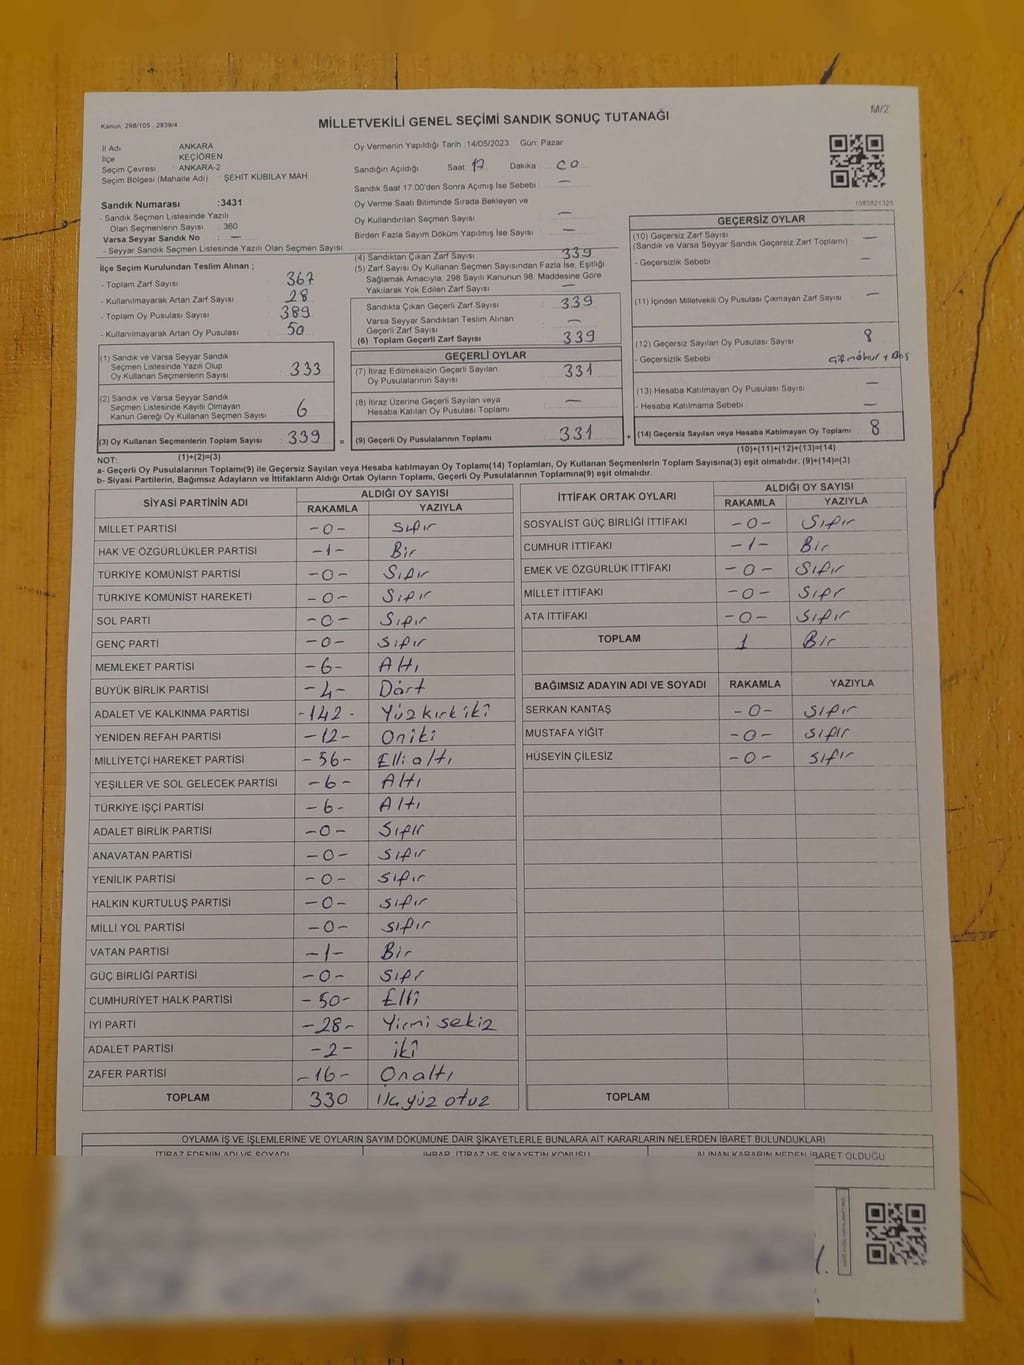 M/2
Kanun: 298/105 , 2839/4
MİLLETVEKİLİ GENEL SEÇİMİ SANDIK SONUÇ TUTANAĞI
İl Adı ANKARA
İlçe KEÇİÖREN
Seçim Çevresi ANKARA-2
Seçim Bölgesi (Mahalle Adı) : ŞEHİT KUBİLAY MAH.
Sandık Numarası :3431
- Sandık Seçmen Listesinde Yazılı
Olan Seçmenlerin Sayısı : 360
Varsa Seyyar Sandık No : —
- Seyyar Sandık Seçmen Listesinde Yazılı Olan Seçmen Sayısı:
Oy Vermenin Yapıldığı Tarih :14/05/2023 Gün: Pazar
Sandığın Açıldığı Saat 17 Dakika 00
Sandık Saat 17.00'den Sonra Açımış İse Sebebi —
Oy Verme Saati Bitiminde Sırada Bekleyen ve
Oy Kullandırılan Seçmen Sayısı —
Birden Fazla Sayım Döküm Yapılmış İse Sayısı —
1083821325
İlçe Seçim Kurulundan Teslim Alınan ;
- Toplam Zarf Sayısı 367
- Kullanılmayarak Artan Zarf Sayısı 28
- Toplam Oy Pusulası Sayısı 389
- Kullanılmayarak Artan Oy Pusulası 50
(1) Sandık ve Varsa Seyyar Sandık
Seçmen Listesinde Yazılı Olup
Oy Kullanan Seçmenlerin Sayısı 333
(2) Sandık ve Varsa Seyyar Sandık
Seçmen Listesinde Kayıtlı Olmayan
Kanun Gereği Oy Kullanan Seçmen Sayısı 6
(3) Oy Kullanan Seçmenlerin Toplam Sayısı 339 =
(1)+(2)=(3)
(4) Sandıktan Çıkan Zarf Sayısı 339
(5) Zarf Sayısı Oy Kullanan Seçmen Sayısından Fazla İse, Eşitliği
Sağlamak Amacıyla; 298 Sayılı Kanunun 98. Maddesine Göre
Yakılarak Yok Edilen Zarf Sayısı —
Sandıkta Çıkan Geçerli Zarf Sayısı 339
Varsa Seyyar Sandıktan Teslim Alınan
Geçerli Zarf Sayısı —
(6) Toplam Geçerli Zarf Sayısı 339
GEÇERLİ OYLAR
(7) İtiraz Edilmeksizin Geçerli Sayılan
Oy Pusulalarının Sayısı 331
(8) İtiraz Üzerine Geçerli Sayılan veya
Hesaba Katılan Oy Pusulası Toplamı —
(9) Geçerli Oy Pusulalarının Toplamı 331 +
GEÇERSİZ OYLAR
(10) Geçersiz Zarf Sayısı —
(Sandık ve Varsa Seyyar Sandık Geçersiz Zarf Toplamı)
- Geçersizlik Sebebi —
(11) İçinden Milletvekili Oy Pusulası Çıkmayan Zarf Sayısı —
(12) Geçersiz Sayılan Oy Pusulası Sayısı 8
- Geçersizlik Sebebi
(13) Hesaba Katılmayan Oy Pusulası Sayısı —
- Hesaba Katılmama Sebebi —
(14) Geçersiz Sayılan veya Hesaba Katılmayan Oy Toplamı 8
(10)+(11)+(12)+(13)=(14)
NOT:
a- Geçerli Oy Pusulalarının Toplamı(9) ile Geçersiz Sayılan veya Hesaba katılmayan Oy Toplamı(14) Toplamları, Oy Kullanan Seçmenlerin Toplam Sayısına(3) eşit olmalıdır. (9)+(14)=(3)
b- Siyasi Partilerin, Bağımsız Adayların ve İttifakların Aldığı Ortak Oyların Toplamı, Geçerli Oy Pusulalarının Toplamına(9) eşit olmalıdır.
SİYASİ PARTİNİN ADI ALDIĞI OY SAYISI
RAKAMLA YAZIYLA
MİLLET PARTİSİ -0- Sıfır
HAK VE ÖZGÜRLÜKLER PARTİSİ -1- Bir
TÜRKİYE KOMÜNİST PARTİSİ -0- Sıfır
TÜRKİYE KOMÜNİST HAREKETİ -0- Sıfır
SOL PARTİ -0- Sıfır
GENÇ PARTİ -0- Sıfır
MEMLEKET PARTİSİ -6- Altı
BÜYÜK BİRLİK PARTİSİ -4- Dört
ADALET VE KALKINMA PARTİSİ -142- Yüz kırk iki
YENİDEN REFAH PARTİSİ -12- On iki
MİLLİYETÇİ HAREKET PARTİSİ -56- Elli altı
YEŞİLLER VE SOL GELECEK PARTİSİ -6- Altı
TÜRKİYE İŞÇİ PARTİSİ -6- Altı
ADALET BİRLİK PARTİSİ -0- Sıfır
ANAVATAN PARTİSİ -0- Sıfır
YENİLİK PARTİSİ -0- Sıfır
HALKIN KURTULUŞ PARTİSİ -0- Sıfır
MİLLİ YOL PARTİSİ -0- Sıfır
VATAN PARTİSİ -1- Bir
GÜÇ BİRLİĞİ PARTİSİ -0- Sıfr
CUMHURİYET HALK PARTİSİ -50- Elli
İYİ PARTİ -28- Yirmi sekiz
ADALET PARTİSİ -2- iki
ZAFER PARTİSİ -16- Onaltı
TOPLAM 330 otuz
İTTİFAK ORTAK OYLARI ALDIĞI OY SAYISI
RAKAMLA YAZIYLA
SOSYALİST GÜÇ BİRLİĞİ İTTİFAKI -0- Sıfır
CUMHUR İTTİFAKI -1- Bir
EMEK VE ÖZGÜRLÜK İTTİFAKI -0- Sıfır
MİLLET İTTİFAKI -0- Sıfr
ATA İTTİFAKI -0- Sıfır
TOPLAM 1 Bir
BAĞIMSIZ ADAYIN ADI VE SOYADI RAKAMLA YAZIYLA
SERKAN KANTAŞ -0- Sıfır
MUSTAFA YİĞİT -0- Sıfır
HÜSEYİN ÇİLESİZ -0- Sıfır
TOPLAM
OYLAMA İŞ VE İŞLEMLERİNE VE OYLARIN SAYIM DÖKÜMÜNE DAİR ŞİKAYETLERLE BUNLARA AİT KARARLARIN NELERDEN İBARET BULUNDUKLARI
İTİRAZ EDENİN ADI VE SOYADI İHBAR, İTİRAZ VE ŞİKAYETİN KONUSU ALINAN KARARIN NEDEN İBARET OLDUĞU